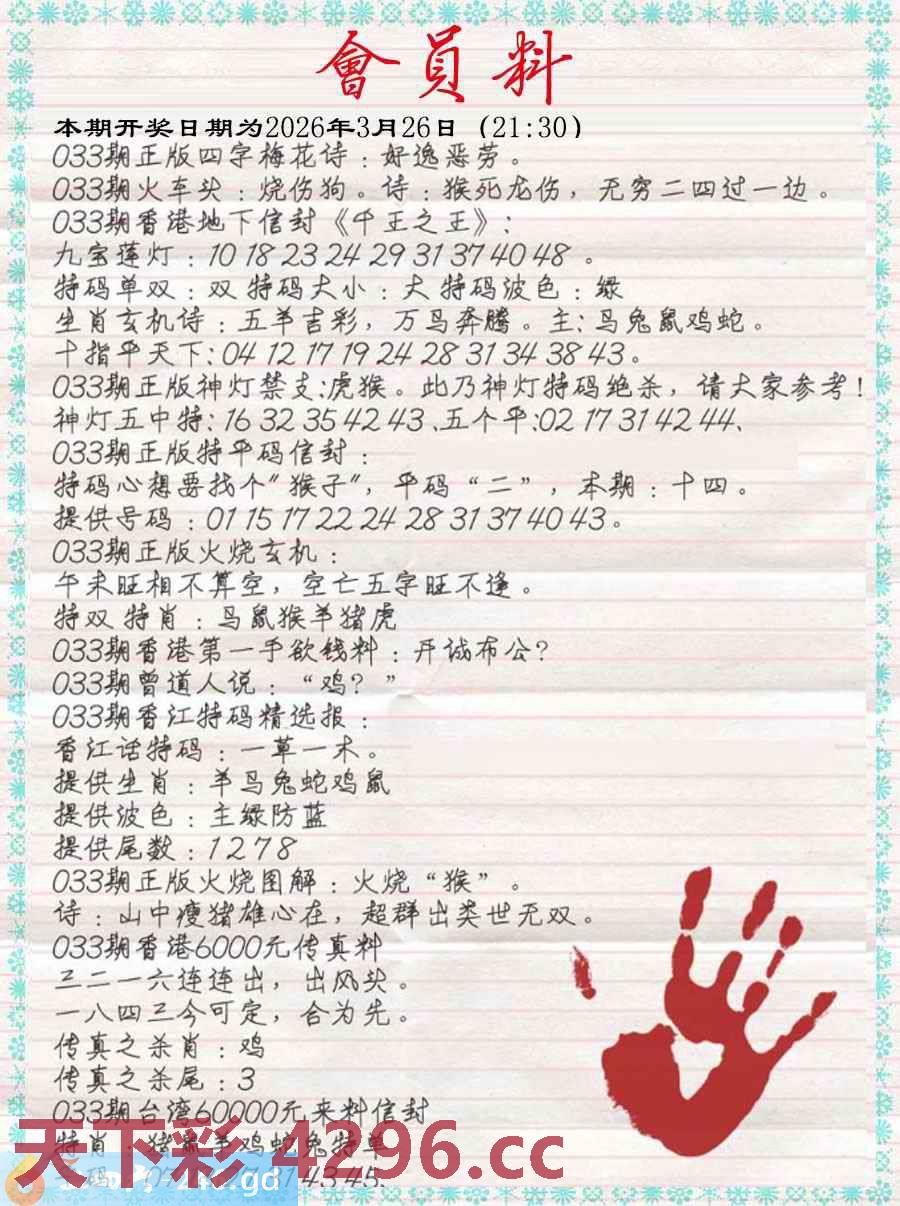 會員料
本期开奖日期为2026年3月26日（21:30）
033期正版四字梅花诗：好逸恶劳。
033期火车头：烧伤狗。诗：猴死龙伤，无穷二四过一边。
033期香港地下信封《千王之王》：
九宝莲灯：10 18 23 24 29 31 37 40 48 。
特码单双：双 特码大小：大 特码波色：绿
生肖玄机诗：五羊吉彩，万马奔腾。主：马兔鼠鸡蛇。
十指平天下：04 12 17 19 24 28 31 34 38 43。
033期正版神灯禁支：虎猴。此乃神灯特码绝杀，请大家参考！
神灯五中特：16 32 35 42 43、五个平：02 17 31 42 44、
033期正版特平码信封：
特码心想要找个"猴子"，平码“二”，本期：十四。
提供号码：01 15 17 22 24 28 31 37 40 43。
033期正版火烧玄机：
午未旺相不算空，空亡五字旺不逢。
特双 特肖：马鼠猴羊猪虎
033期香港第一手欲钱料：开诚布公？
033期曾道人说：“鸡？”
033期香江特码精选报：
香江话特码：一草一木。
提供生肖：羊马兔蛇鸡鼠
提供波色：主绿防蓝
提供尾数：1 2 7 8
033期正版火烧图解：火烧“猴”。
诗：山中瘦猪雄心在，超群出类世无双。
033期香港6000元传真料
三二一六连连出，出风头。
一八四三今可定，合为先。
传真之杀肖：鸡
传真之杀尾：3
033期台湾60000元来料信封
特肖：猪鼠羊鸡蛇兔特单
天下彩 4296.cc
43 45、